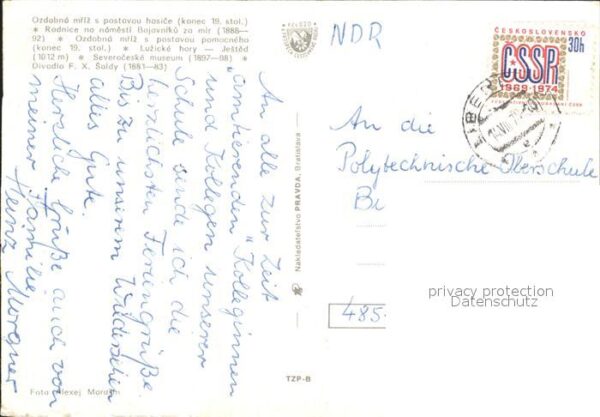 Ozdobná mříž s postavou hasiče (konec 19. stol.)
* Radnice na náměstí Bojovníků za mír (1888—
92) * Ozdobná mříž s postavou pomocného
(konec 19. stol.) * Lužické hory — Ještěd
(1012 m) * Severočeské museum (1897—98) *
Divadlo F. X. Šaldy (1881—83)
An alle zur Zeit
„amtierenden" Kolleginnen
und Kollegen unserer
Schule sende ich die
herzlichsten Feriengrüße.
Bis zu unserem Wiedersehen
alles Gute
Herzliche Grüße auch von
meiner Familie
Heinz Morgner
Foto Alexej
TZP-B
Nakladatelstvo PRAVDA, Bratislava
NDR
ČESKOSLOVENSKO
30h
ČSSR
1969-1974
An die
Polytechnische Oberschule
485
privacy protection
Datenschutz